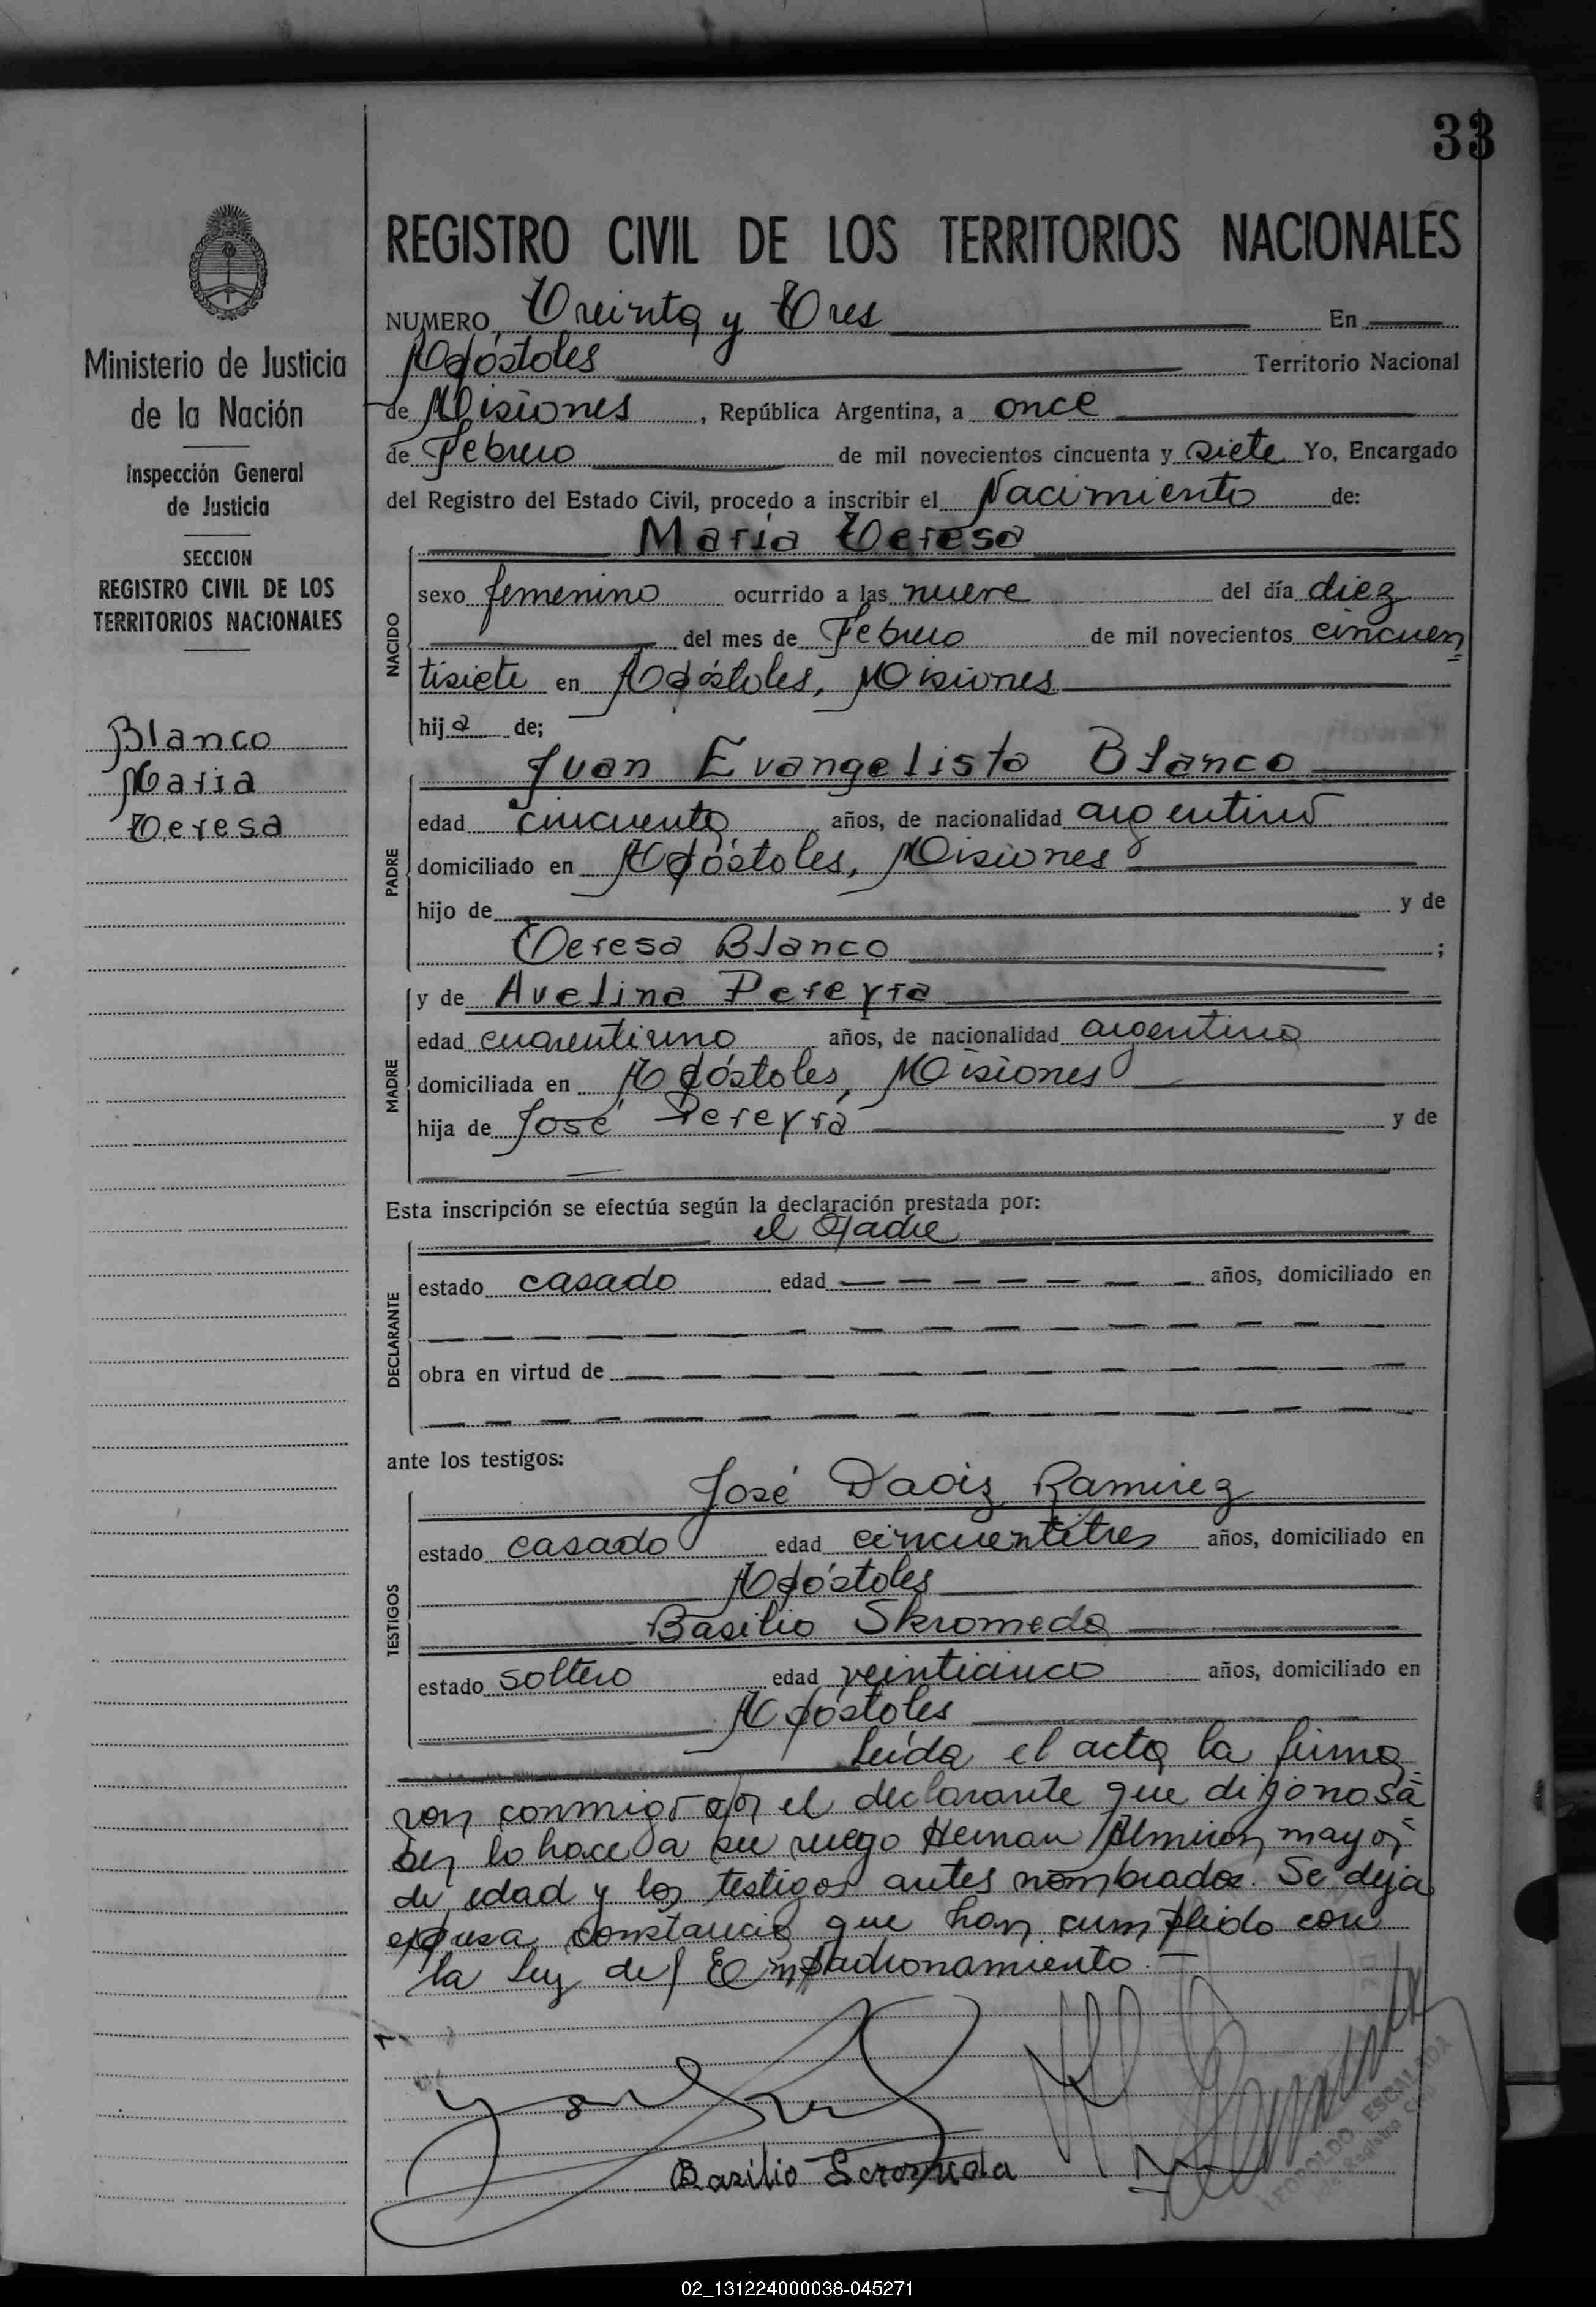 33
REGISTRO CIVIL DE LOS TERRITORIOS NACIONALES
NUMERO Treinta y Tres En
Apóstoles Territorio Nacional
de Misiones, República Argentina, a once
de Febrero de mil novecientos cincuenta y siete Yo, Encargado
del Registro del Estado Civil, procedo a inscribir el Nacimiento de:
Ministerio de Justicia
de la Nación
Inspección General
de Justicia
SECCION
REGISTRO CIVIL DE LOS
TERRITORIOS NACIONALES
Blanco
Maria
Teresa
NACIDO
María Teresa
sexo femenino ocurrido a las nueve del día diez
del mes de Febrero de mil novecientos cincuen
tisiete en Apóstoles, Misiones
hija de;
PADRE
Juan Evangelista Blanco
edad cincuenta años, de nacionalidad argentino
domiciliado en Apóstoles, Misiones
hijo de y de
Teresa Blanco ;
MADRE
y de Avelina Pereyra
edad cuarentiuno años, de nacionalidad argentina
domiciliada en Apóstoles, Misiones
hija de José Pereyra y de
Esta inscripción se efectúa según la declaración prestada por:
DECLARANTE
el Padre
estado casado edad años, domiciliado en
obra en virtud de
ante los testigos:
TESTIGOS
José Daoiz Ramirez
estado casado edad cincuentitres años, domiciliado en
Apóstoles
Basilio Skromeda
estado soltero edad veinticinco años, domiciliado en
Apóstoles
Leída el acta la firma
ron conmigo por el declarante que dijo no sa
ber lo hace a su ruego Hernan Almiron mayor
de edad y los testigos antes nombrados. Se deja
expresa constancia que han cumplido con
la Ley de Empadronamiento.
Basilio Scromeda
LEOPOLDO ESCALADA
02_131224000038-045271